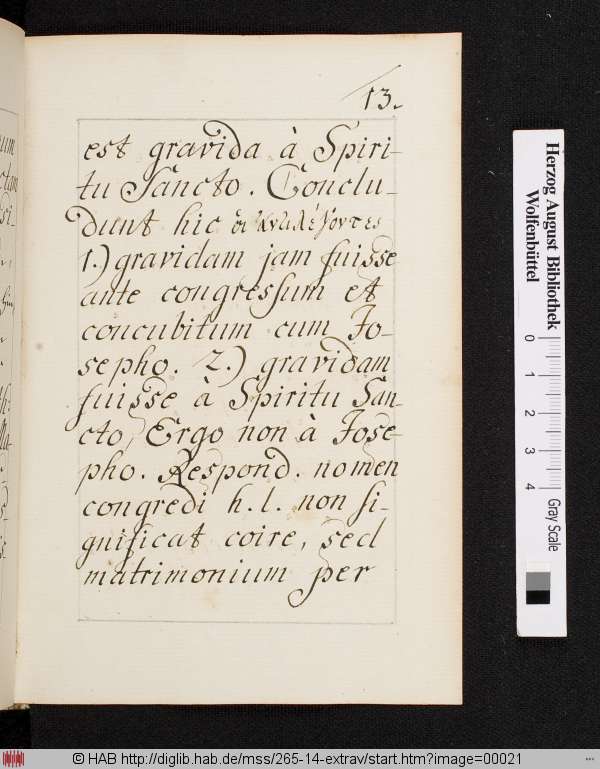 13.
est gravida à Spiri-
tu Sancto. Conclu-
dunt hic οἱ
1.) gravidam jam fuisse
ante congressum et
concubitum cum Jo-
sepho. 2.) gravidam
fuisse à Spiritu San-
cto, Ergo non à Jose-
pho. Respond. nomen
congredi h. l. non si-
gnificat coire, sed
matrimonium per
Herzog August Bibliothek
Wolfenbüttel
0 1 2 3 4
Gray Scale
© HAB http://diglib.hab.de/mss/265-14-extrav/start.htm?image=00021